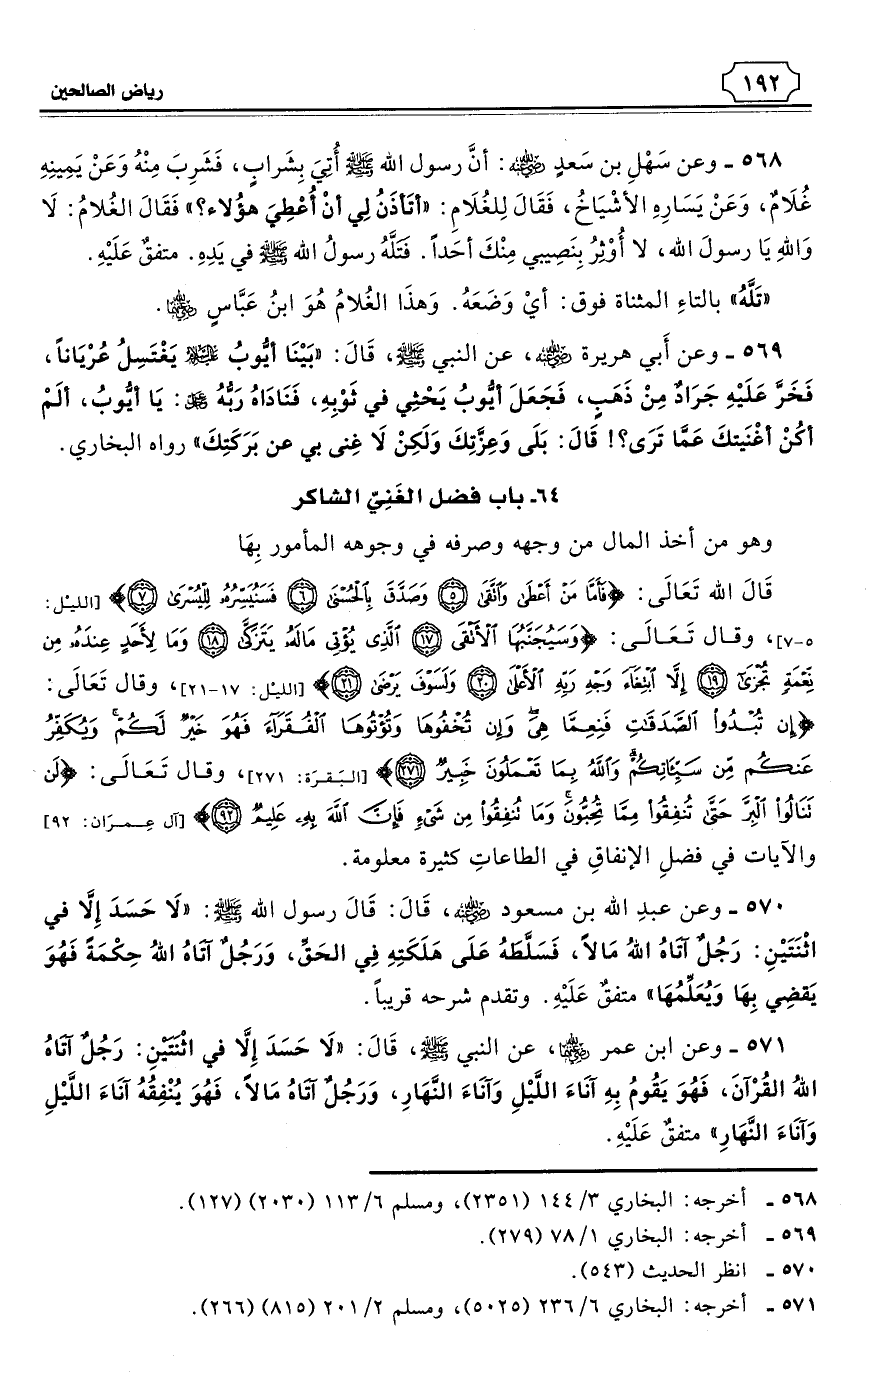 ١٩٢
رياض الصالحين
٥٦٨ ـ وعن سَهْلِ بن سَعدٍ رضي الله عنه: أنَّ رسول الله ﷺ أُتِيَ بِشَرابٍ، فَشَرِبَ مِنْهُ وَعَنْ يَمِينِهِ
غُلَامٌ، وَعَنْ يَسَارِهِ الأشْيَاخُ، فَقَالَ لِلغُلَامِ: «أتَأذَنُ لِي أنْ أُعْطِيَ هؤُلاء؟» فَقَالَ الغُلامُ: لَا
وَاللهِ يَا رسولَ الله، لا أُوْثِرُ بِنَصِيبي مِنْكَ أحَداً. فَتَلَّهُ رسولُ الله ﷺ في يَدِهِ. متفقٌ عَلَيْهِ.
«تَلَّهُ» بالتاءِ المثناة فوق: أيْ وَضَعَهُ. وَهذَا الغُلامُ هُوَ ابنُ عَبَّاسٍ رضي الله عنهما.
٥٦٩ ـ وعن أبي هريرة رضي الله عنه، عن النبي ﷺ، قَالَ: «بَيْنَا أيُّوبُ عليه السلام يَغْتَسِلُ عُرْيَاناً،
فَخَرَّ عَلَيْهِ جَرَادٌ مِنْ ذَهَبٍ، فَجَعَلَ أيُّوبُ يَحْثِي في ثَوْبِهِ، فَنَادَاهُ رَبُّهُ عز وجل: يَا أيُّوبُ، ألَمْ
أكُنْ أغْنَيتكَ عَمَّا تَرَى؟! قَالَ: بَلَى وَعِزَّتِكَ وَلكِنْ لَا غِنى بي عن بَرَكَتِكَ» رواه البخاري.
٦٤ـ باب فضل الغَنِيّ الشاكر
وهو من أخذ المال من وجهه وصرفه في وجوهه المأمور بِهَا
قَالَ الله تَعَالَى: ﴿فَأَمَّا مَنْ أَعْطَى وَٱتَّقَى ۝٥ وَصَدَّقَ بِٱلْحُسْنَى ۝٦ فَسَنُيَسِّرُهُۥ لِلْيُسْرَى ۝٧﴾ [الليْل:
٥-٧]، وقـال تَـعَـالَـى: ﴿وَسَيُجَنَّبُهَا ٱلْأَتْقَى ۝١٧ ٱلَّذِى يُؤْتِى مَالَهُۥ يَتَزَكَّى ۝١٨ وَمَا لِأَحَدٍ عِندَهُۥ مِن
نِّعْمَةٍ تُجْزَىٰٓ ۝١٩ إِلَّا ٱبْتِغَآءَ وَجْهِ رَبِّهِ ٱلْأَعْلَىٰ ۝٢٠ وَلَسَوْفَ يَرْضَىٰ ۝٢١﴾ [الليل: ١٧-٢١]، وقال تَعَالَى:
﴿إِن تُبْدُوا۟ ٱلصَّدَقَـٰتِ فَنِعِمَّا هِىَ ۖ وَإِن تُخْفُوهَا وَتُؤْتُوهَا ٱلْفُقَرَآءَ فَهُوَ خَيْرٌ لَّكُمْ ۚ وَيُكَفِّرُ
عَنكُم مِّن سَيِّـَٔاتِكُمْ ۗ وَٱللَّهُ بِمَا تَعْمَلُونَ خَبِيرٌ ۝٢٧١﴾ [البَقـَرَة: ٢٧١]، وقـال تَـعَـالَـى: ﴿لَن
تَنَالُوا۟ ٱلْبِرَّ حَتَّىٰ تُنفِقُوا۟ مِمَّا تُحِبُّونَ ۚ وَمَا تُنفِقُوا۟ مِن شَىْءٍ فَإِنَّ ٱللَّهَ بِهِۦ عَلِيمٌ ۝٩٢﴾ [آل عِـمـرَان: ٩٢]
والآيات في فضلِ الإنفاقِ في الطاعاتِ كثيرة معلومة.
٥٧٠ ـ وعن عبدِ الله بن مسعود رضي الله عنه، قَالَ: قَالَ رسول الله ﷺ: «لَا حَسَدَ إِلَّا في
اثْنَتَيْنِ: رَجُلٌ آتَاهُ اللهُ مَالاً، فَسَلَّطَهُ عَلَى هَلَكَتِهِ فِي الحَقِّ، وَرَجُلٌ آتَاهُ اللهُ حِكْمَةً فَهُوَ
يَقضِي بِهَا وَيُعَلِّمُهَا» متفقٌ عَلَيْهِ. وتقدم شرحه قريباً.
٥٧١ ـ وعن ابن عمر رضي الله عنهما، عن النبي ﷺ، قَالَ: «لَا حَسَدَ إِلَّا في اثْنَتَيْنِ: رَجُلٌ آتَاهُ
اللهُ القُرْآنَ، فَهُوَ يَقُومُ بِهِ آنَاءَ اللَّيْلِ وَآنَاءَ النَّهَارِ، وَرَجُلٌ آتَاهُ مَالاً، فَهُوَ يُنْفِقُهُ آنَاءَ اللَّيْلِ
وَآنَاءَ النَّهَارِ» متفقٌ عَلَيْهِ.
٥٦٨ ـ أخرجه: البخاري ٣/ ١٤٤ (٢٣٥١)، ومسلم ٦/ ١١٣ (٢٠٣٠) (١٢٧).
٥٦٩ ـ أخرجه: البخاري ١/ ٧٨ (٢٧٩).
٥٧٠ ـ انظر الحديث (٥٤٣).
٥٧١ ـ أخرجه: البخاري ٦/ ٢٣٦ (٥٠٢٥)، ومسلم ٢/ ٢٠١ (٨١٥) (٢٦٦).